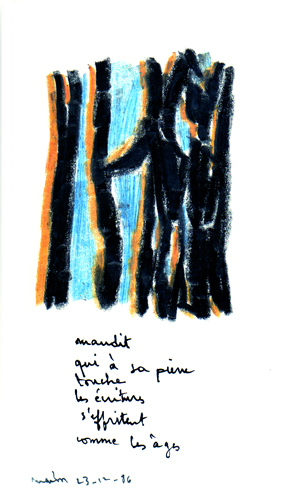 maudit
qui à sa pierre
touche
les écritures
s'effritent
comme les âges
23-12-96